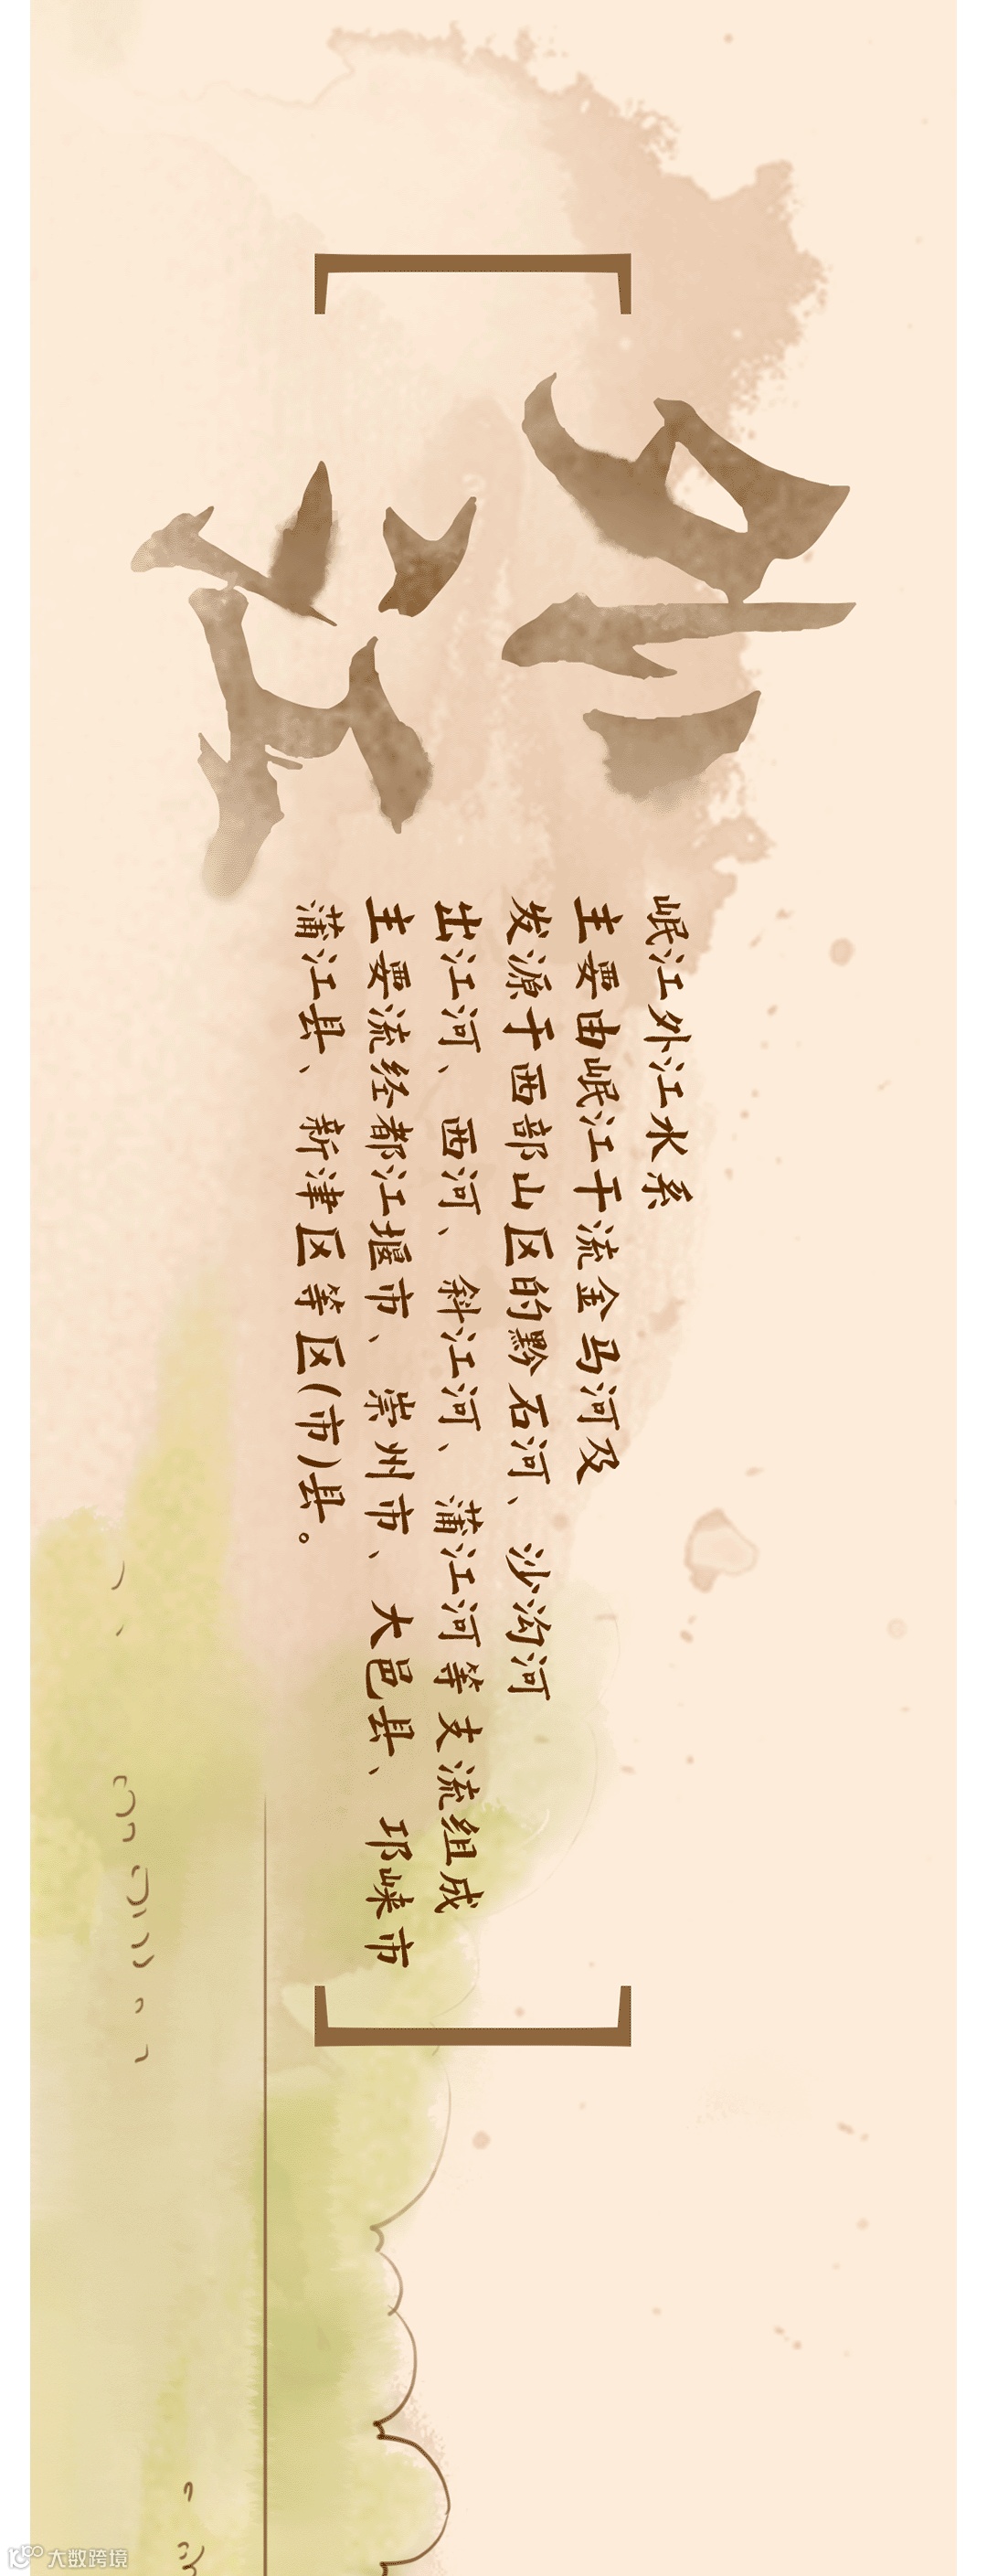 外江
岷江外江水系
主要由岷江干流金马河及
发源于西部山区的黔石河、沙沟河
出江河、西河、斜江河、蒲江河等支流组成
主要流经都江堰市、崇州市、大邑县、邛崃市
蒲江县、新津区等区(市)县。
大数跨境